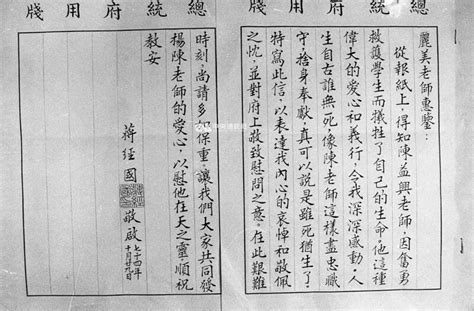 總統府用牋
麗美老師惠鑒：
從報紙上，得知陳益興老師，因奮勇
救護學生而犧牲了自己的生命，他這種
偉大的愛心和義行，令我深深感動，人
生自古誰無死，像陳老師這樣盡忠職
守，捨身奉獻，真可以說是雖死猶生了，
特寫此信，以表達我內心的哀悼和敬佩
之忱，並對府上敬致慰問之意，在此艱難
總統府用牋
時刻，尚請多加保重，讓我們大家共同發
揚陳老師的愛心，以慰他在天之靈，順祝
教安
蔣經國
敬啟
七十四年
十月廿九日